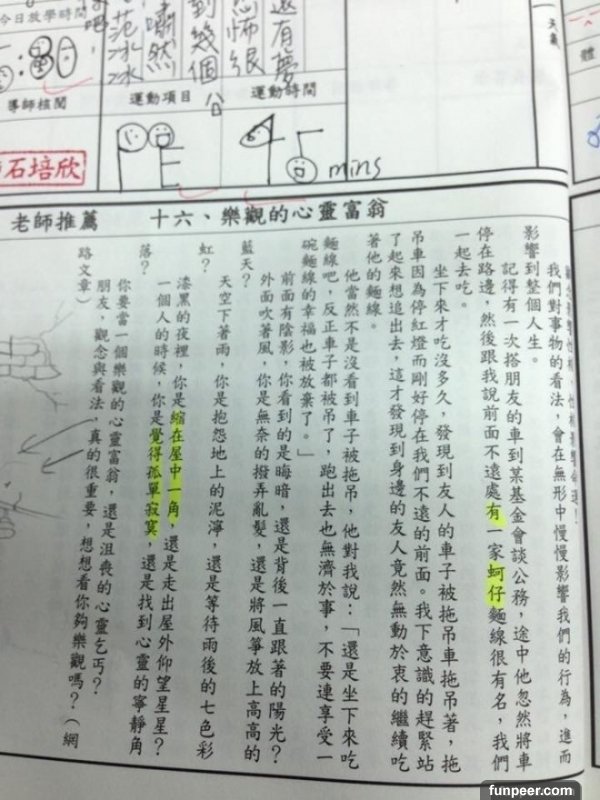 今日放學時間
:30
導師核閱
石培欣
還有夢
恐怖很
到幾個
嘯然
范冰冰
吧,
運動項目
運動時間
PE
45 mins
天氣
體
老師推薦
十六、樂觀的心靈富翁
我們對事物的看法,會在無形中慢慢影響我們的行為,進而
影響到整個人生。
記得有一次搭朋友的車到某基金會談公務,途中他忽然將車
停在路邊,然後跟我說前面不遠處有一家蚵仔麵線很有名,我們
一起去吃。
坐下來才吃沒多久,發現到友人的車子被拖吊車拖吊著,拖
吊車因為停紅燈而剛好停在我們不遠的前面。我下意識的趕緊站
了起來想追出去,這才發現到身邊的友人竟然無動於衷的繼續吃
著他的麵線。
他當然不是沒看到車子被拖吊,他對我說:「還是坐下來吃
麵線吧,反正車子都被吊了,跑出去也無濟於事,不要連享受一
碗麵線的幸福也被放棄了。」
前面有陰影,你看到的是晦暗,還是背後一直跟著的陽光?
外面吹著風,你是無奈的撥弄亂髮,還是將風箏放上高高的
藍天?
天空下著雨,你是抱怨地上的泥濘,還是等待雨後的七色彩
虹?
漆黑的夜裡,你是縮在屋中一角,還是走出屋外仰望星星?
一個人的時候,你是覺得孤單寂寞,還是找到心靈的寧靜角
落?
你要當一個樂觀的心靈富翁,還是沮喪的心靈乞丐?
朋友,觀念與看法,真的很重要,想想看你夠樂觀嗎?(網
路文章)
funpeer.com